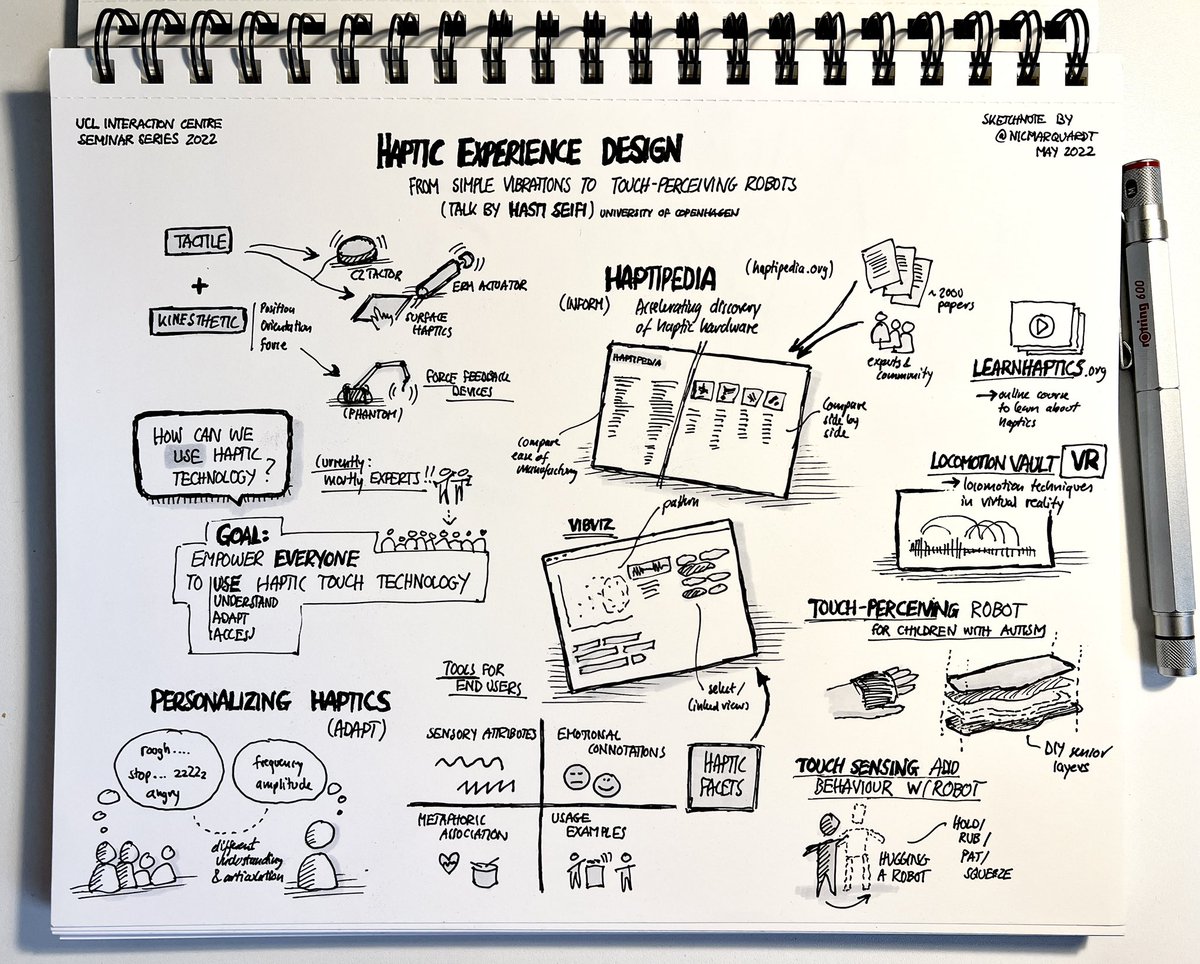 UCL INTERACTION CENTRE
SEMINAR SERIES 2022
SKETCHNOTE BY
@NICMARQUARDT
MAY 2022
HAPTIC EXPERIENCE DESIGN
FROM SIMPLE VIBRATIONS TO TOUCH-PERCEIVING ROBOTS
(TALK BY HASTI SEIFI) UNIVERSITY OF COPENHAGEN
TACTILE
+
KINESTHETIC
Position
Orientation
Force
C2 TACTOR
ERM ACTUATOR
SURFACE
HAPTICS
FORCE FEEDBACK
DEVICES
(PHANTOM)
HOW CAN WE
USE HAPTIC
TECHNOLOGY?
Currently:
mostly EXPERTS!!
GOAL:
EMPOWER EVERYONE
TO USE HAPTIC TOUCH TECHNOLOGY
UNDERSTAND
ADAPT
ACCESS
HAPTIPEDIA
(haptipedia.org)
(INFORM)
Accelerating discovery
of haptic hardware
~2000
papers
experts &
community
HAPTIPEDIA
compare
ease of
manufacturing
Compare
side by
side
LEARNHAPTICS.org
→ online course
to learn about
haptics
LOCOMOTION VAULT VR
→ locomotion techniques
in virtual reality
VIBVIZ
pattern
select/
linked views
TOOLS FOR
END USERS
PERSONALIZING HAPTICS
(ADAPT)
rough....
stop... zzzzz
angry
frequency
amplitude
different
understanding
& articulation
SENSORY ATTRIBUTES
EMOTIONAL
CONNOTATIONS
METAPHORIC
ASSOCIATION
USAGE
EXAMPLES
HAPTIC
FACETS
TOUCH-PERCEIVING ROBOT
FOR CHILDREN WITH AUTISM
DIY sensor
layers
TOUCH SENSING AND
BEHAVIOUR W/ ROBOT
HUGGING
A ROBOT
HOLD/
RUB/
PAT/
SQUEEZE
rotring 600